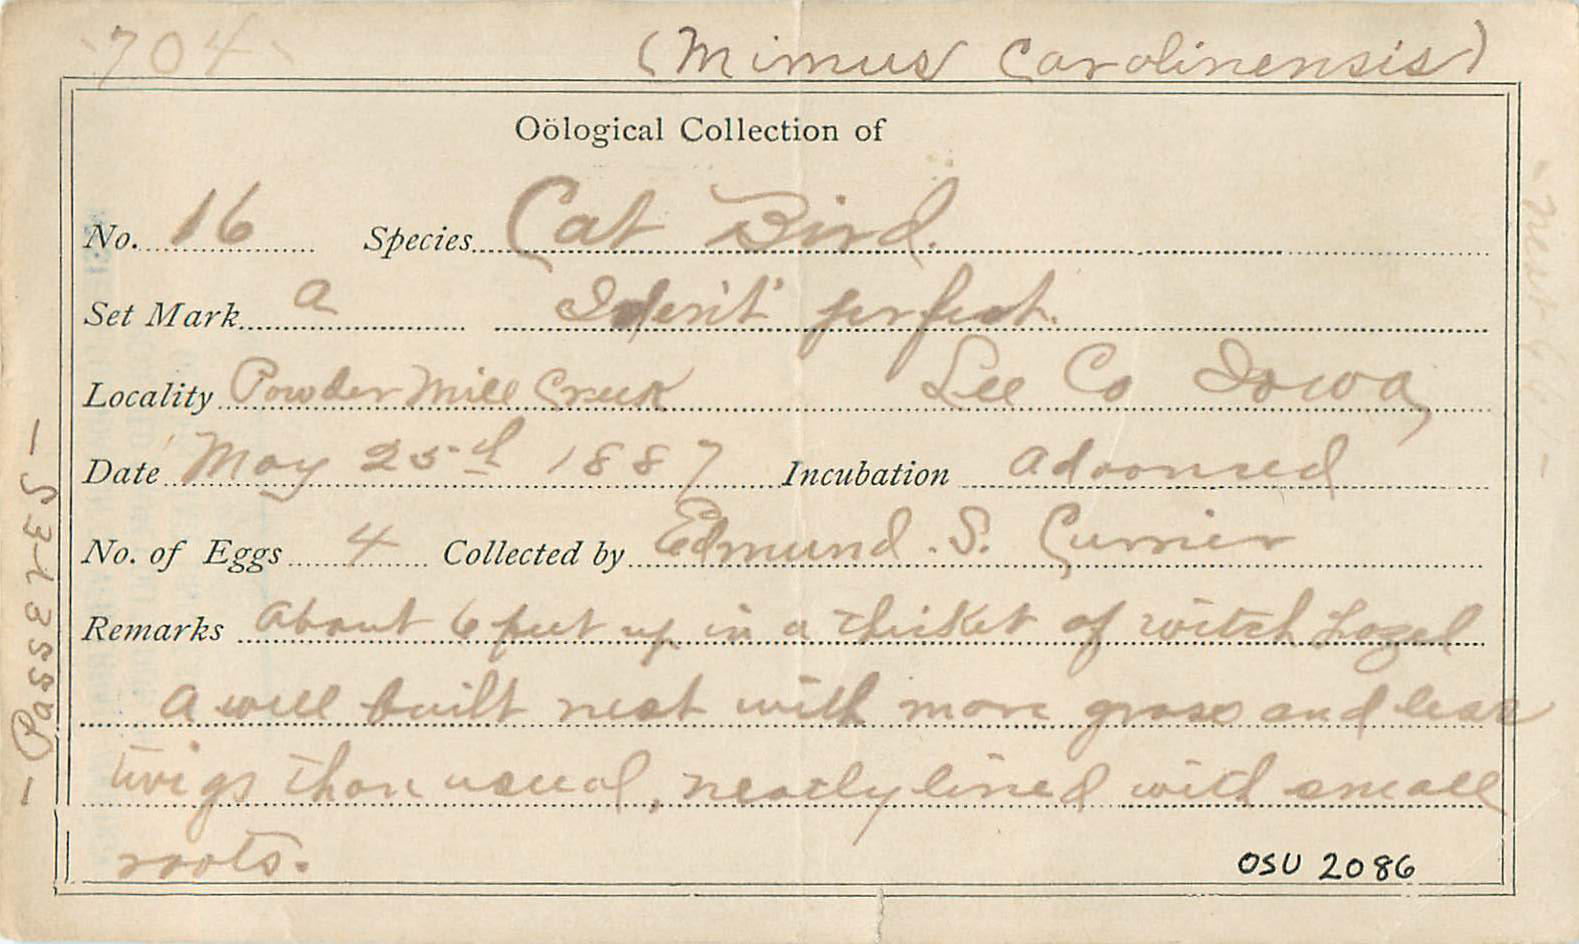 704
(Mimus Carolinensis)
Oölogical Collection of
No. 16 Species Cat Bird.
Set Mark a Ident perfect.
Locality Powder Mill Creek Lee Co Iowa,
Date May 25th 1887 Incubation advanced
No. of Eggs 4 Collected by Edmund. S. Currier
Remarks About 6 feet up in a thicket of witch hazel
A well built nest with more grass and less
twigs than usual, neatly lined with small
roots.
OSU 2086
- Passeres -